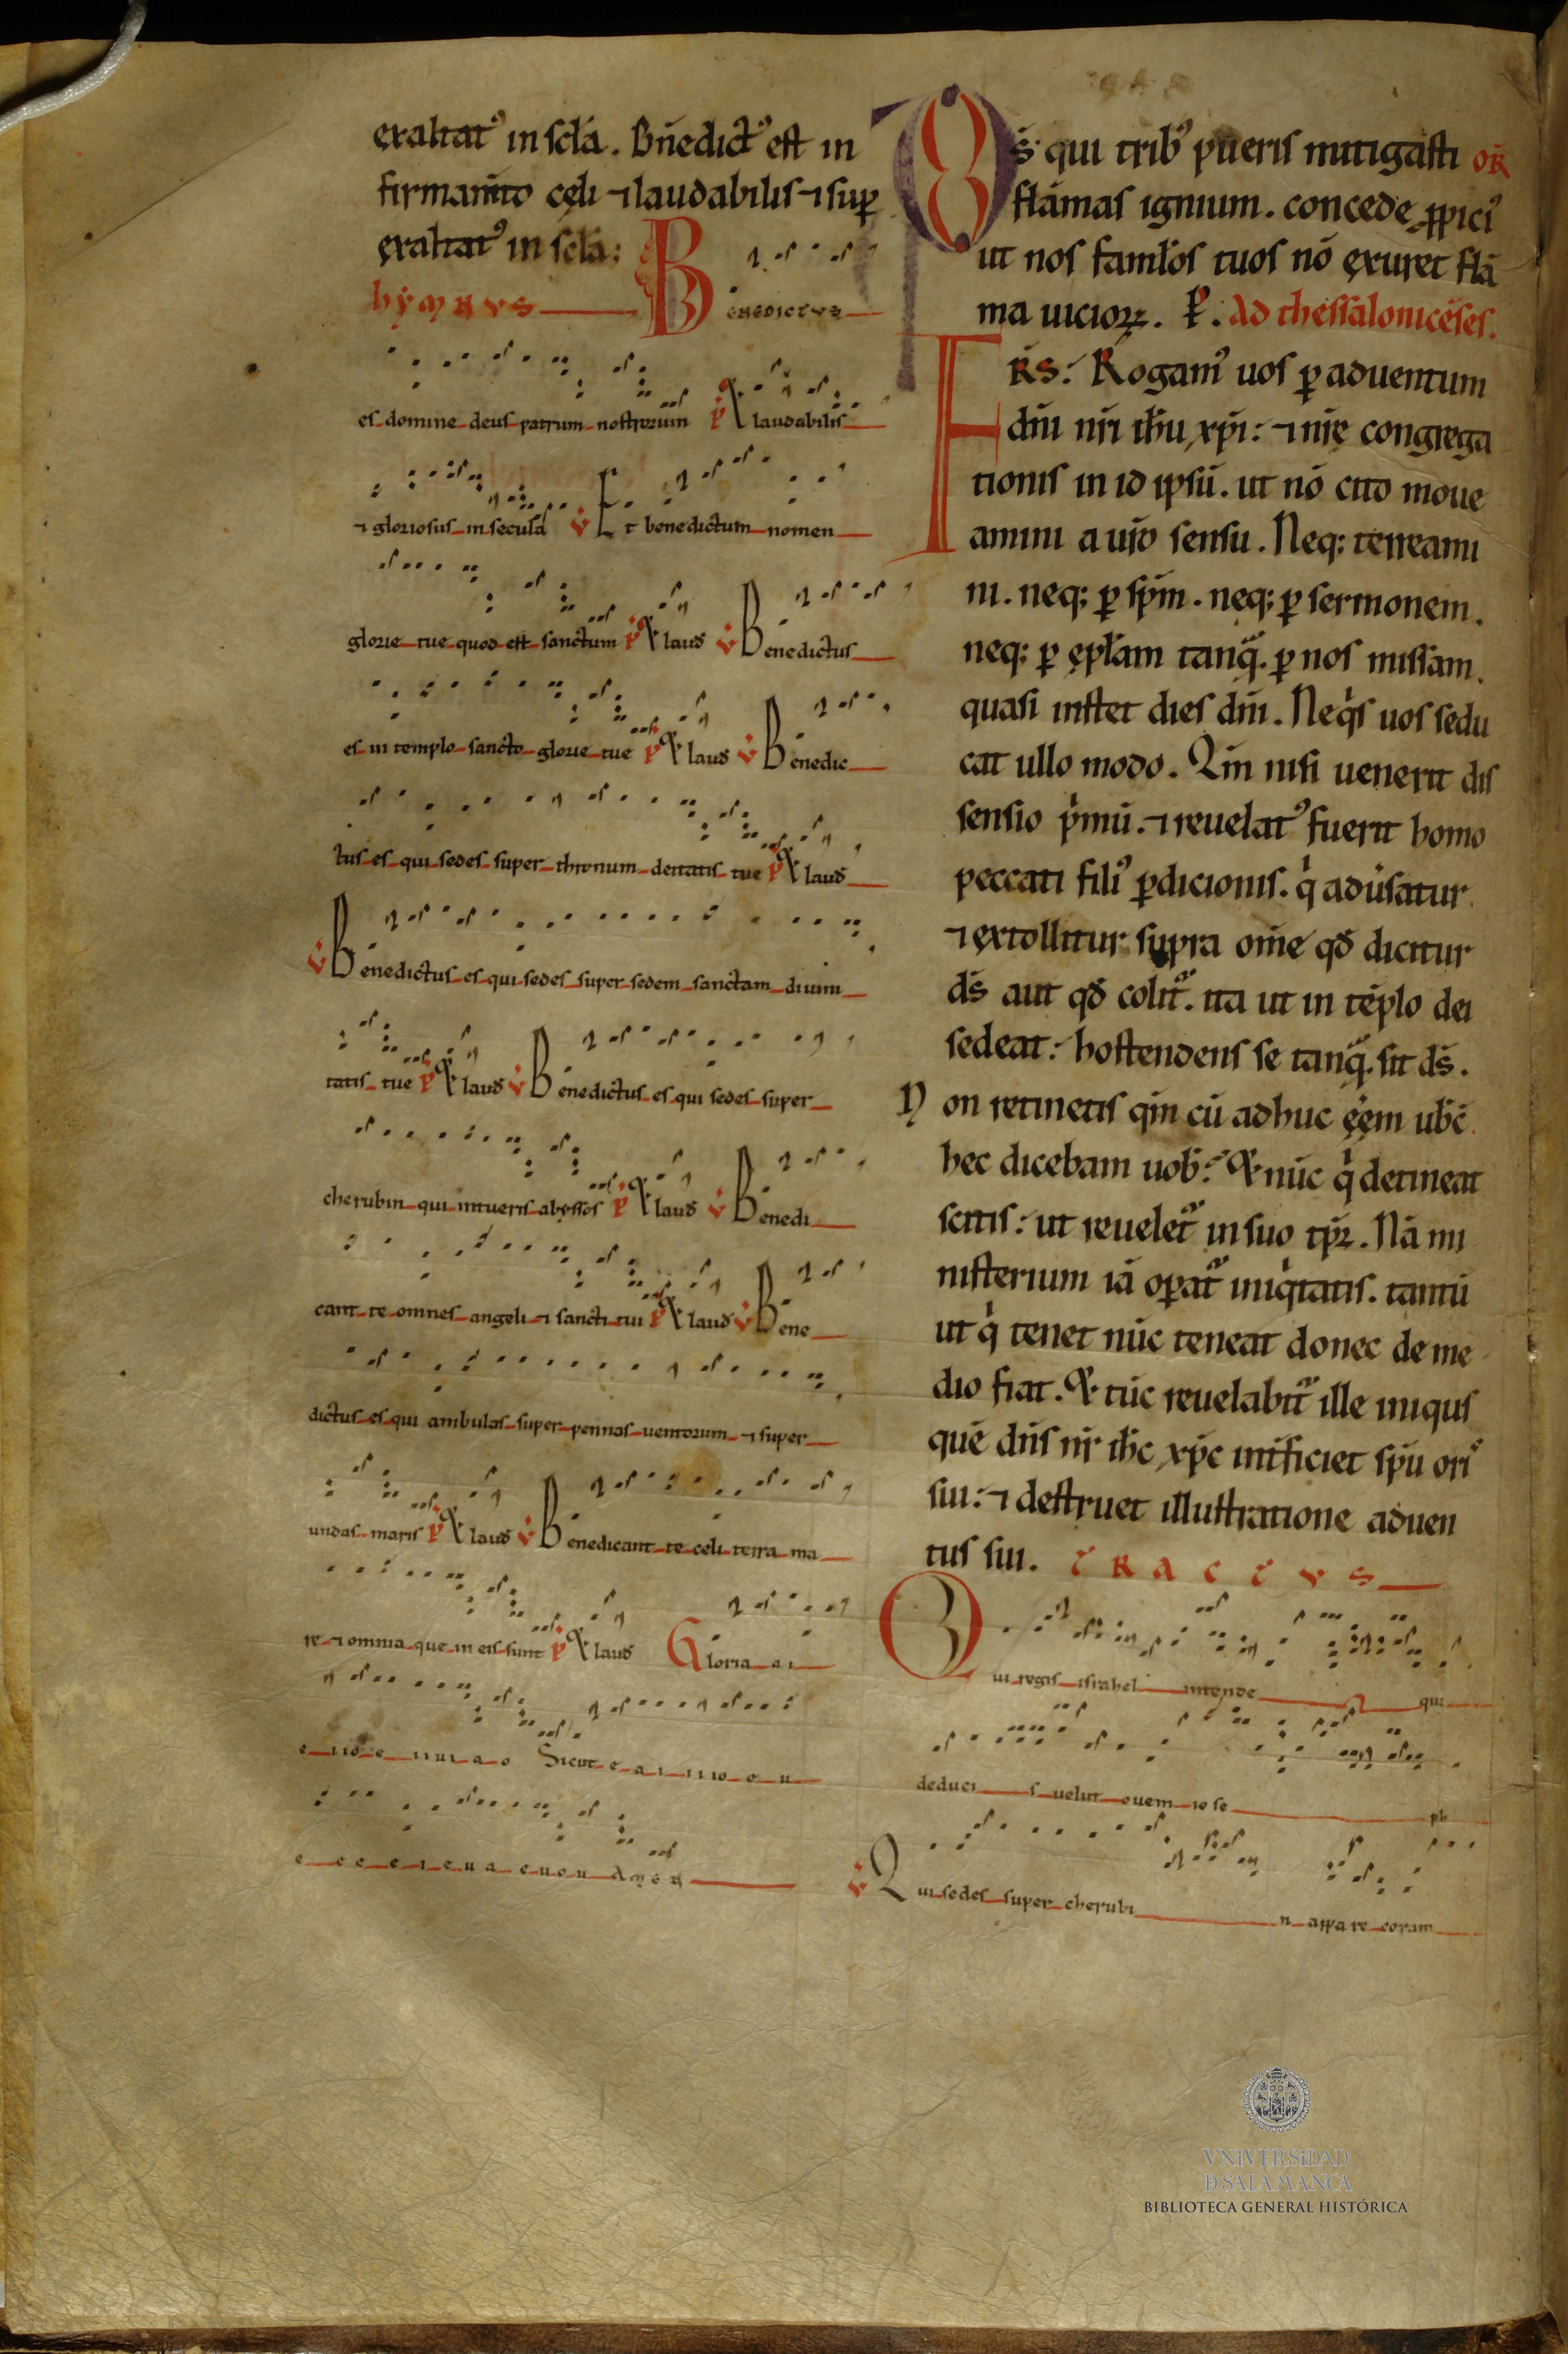 exaltatꝰ in scła. Bñedictꝰ est in
firmamto cęli ⁊ laudabilis ⁊ suꝑ
exaltatꝰ in scła:
hymnvs
Benedictvs
es domine deus patrum nostrorum ℟ Et laudabilis
⁊ gloriosus in secula ℣ Et benedictum nomen
glorie tue quod est sanctum ℟ Et laud ℣ Benedictus
es in templo sancto glorie tue ℟ Et laud ℣ Benedic
tus es qui sedes super thronum deitatis tue ℟ Et laud
℣ Benedictus es qui sedes super sedem sanctam diuini
tatis tue ℟ Et laud ℣ Benedictus es qui sedes super
cherubin qui intueris abyssos ℟ Et laud ℣ Benedi
cant te omnes angeli ⁊ sancti tui ℟ Et laud ℣ Bene
dictus es qui ambulas super pennas uentorum ⁊ super
undas maris ℟ Et laud ℣ Benedicant te celi terra ma
re ⁊ omnia que in eis sunt ℟ Et laud Gloria a i
Sicut e a i
Amen
Ds qui tribꝰ pueris mitigasti or
flāmas ignium. concede ꝓpiciꝰ
ut nos famlos tuos nō exuret flā
ma uicioꝝ. Ad thessalonicēses.
Frs: Rogamꝰ uos ꝑ aduentum
dñi nri ihu xpi: ⁊ nrę congrega
tionis in id ipsū. ut nō cito moue
amini a uro sensu. Neq; terreami
ni. neq; ꝑ spm. neq; ꝑ sermonem.
neq; ꝑ epłam tanq̄. ꝑ nos missam.
quasi instet dies dñi. Neqs uos sedu
cat ullo modo. Qm nisi uenerit dis
sensio pmū. ⁊ reuelatꝰ fuerit homo
peccati filiꝰ ꝑdicionis. q aduersatur
⁊ extollitur supra ome qd dicitur
ds aut qd colit. ita ut in tēplo dei
sedeat: hostendens se tanq̄. sit ds.
Non retinetis qm cū adhuc eēm
hec dicebam uob: Et nūc q detineat
scitis: ut reuelet in suo tpr. Nā mi
nisterium iā oꝑat iniqtatis. tantū
ut q tenet nūc teneat donec de me
dio fiat. Et tūc reuelabit ille iniqus
quē dñs nr ihc xpc intificiet spu ori
sui: ⁊ destruet illustratione aduen
tus sui. Tractvs
Qui regis israhel intende qui
deduci s uelut ouem iose ph
℣ Qui sedes super cherubi n appare coram
VNiVERSiDAD
D SALAMANCA
BIBLIOTECA GENERAL HISTÓRICA